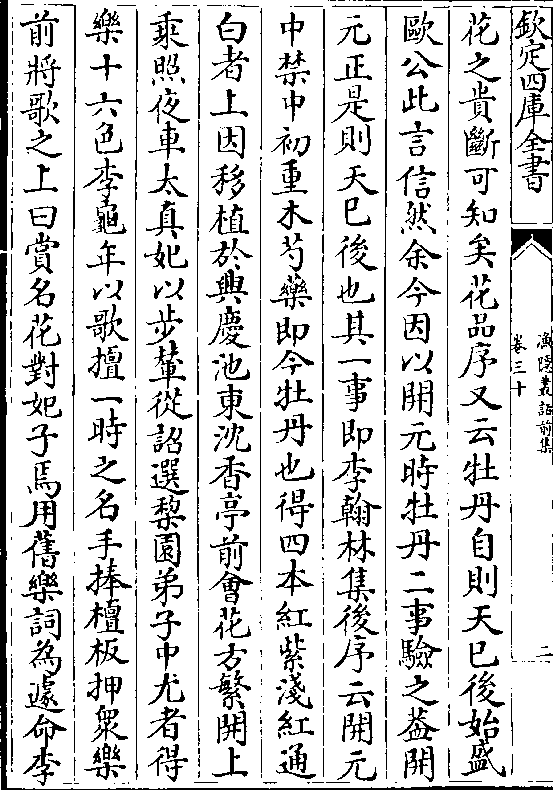 欽定四庫全書
漁隱叢話前集
卷三十
二
花之貴斷可知矣花品序又云牡丹自則天已後始盛
歐公此言信然余今因以開元時牡丹二事驗之葢開
元正是則天已後也其一事即李翰林集後序云開元
中禁中初重木芍藥即今牡丹也得四本紅紫淺紅通
白者上因移植於興慶池東沈香亭前會花方繁開上
乘照夜車太真妃以步輦從詔選棃園弟子中尤者得
樂十六色李龜年以歌擅一時之名手捧檀板押衆樂
前將歌之上曰賞名花對妃子焉用舊樂詞為遽命李